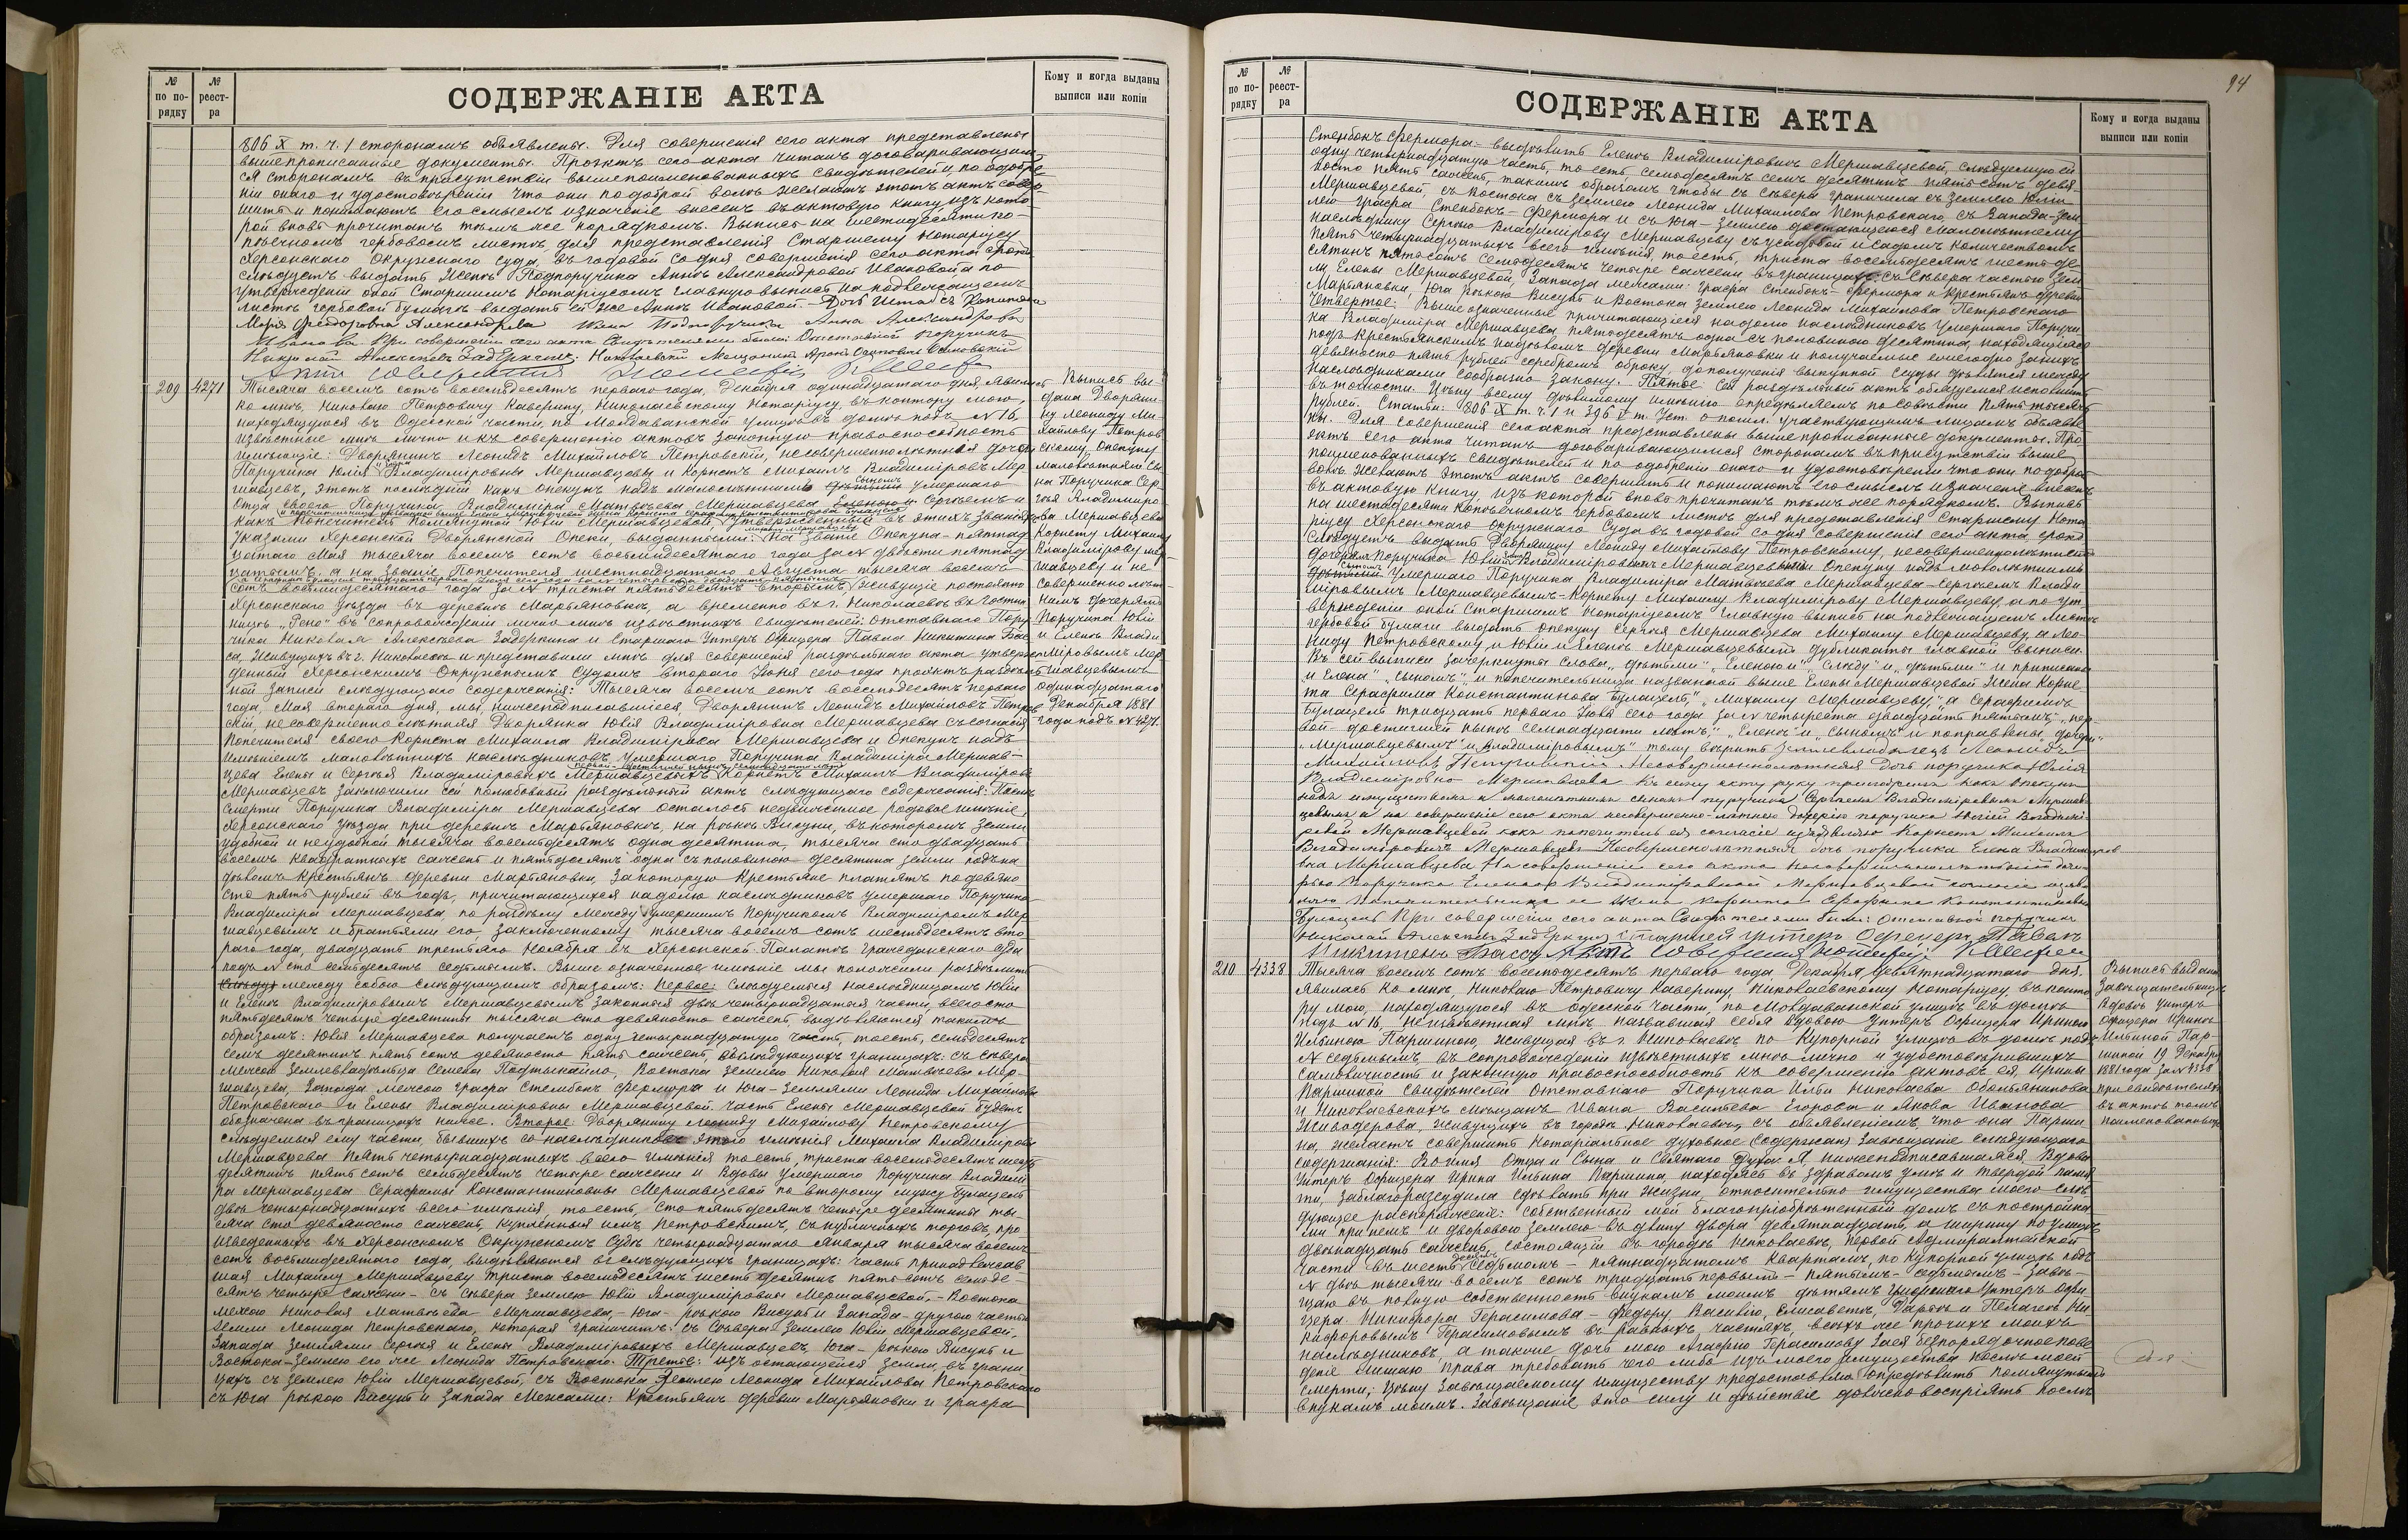 № по по-рядку
№ реест-ра
СОДЕРЖАНІЕ АКТА
Кому и когда выданы выписи или копіи
806 X т. ч. 1 сторонамъ объявлены. Для совершенія сего акта представлены
вышепрописанные документы. Проэктъ сего акта читанъ договаривающим
ся сторонамъ въ присутствіи вышепоименованныхъ свидѣтелей и, по одобре
ніи онаго и удостовѣреніи что они по доброй волѣ желаютъ этотъ актъ совер
шить и понимаютъ его смыслъ и значеніе внесенъ въ актовую книгу, изъ кото
рой вновь прочитанъ тѣмъ же порядкомъ. Выпись на шестидесяти ко-
пѣечномъ гербовомъ листѣ, для представленія Старшему Нотаріусу
Херсонскаго Окружнаго суда, въ годовой со дня совершенія сего акта срокъ
слѣдуетъ выдать Женѣ Подпоручика Аннѣ Александровой Ивановой а по
утвержденіи оной Старшимъ Нотаріусомъ главную выпись на подлежащемъ
листѣ гербовой бумаги выдать ей же Аннѣ Ивановой. Дочь Штабсъ Капитана
Марія Федоровна Александрова Жена Подпоручика Анна Александрова
Иванова При совершеніи сего акта Свидѣтелями были: Отставной Поручикъ
Николай Алексѣевъ Задеркинъ: Николаевскій Мещанинъ
Актъ совершилъ Нотаріусъ
209
4271
Тысяча восемь сотъ восемьдесятъ перваго года, Декабря одинадцатаго дня, явились
ко мнѣ, Николаю Петровичу Каверину, Николаевскому Нотаріусу, въ контору мою,
находящуюся въ Одесской части, по Молдаванской улицѣ въ домѣ подъ № 16,
извѣстные мнѣ лично и къ совершенію актовъ законную правоспособность
имѣющіе: Дворянинъ Леонидъ Михайловъ Петровскій, несовершеннолѣтнія дочери
Поручика Юлія и Елена Владиміровны Мершавцевы и Корнетъ Михаилъ Владиміровъ Мер
шавцевъ, этотъ послѣдній какъ опекунъ надъ малолѣтнимъ сыномъ дѣтьми умершаго
Отца своего Поручика Владиміра Матвѣева Мершавцева Еленою и Сергѣемъ и
какъ попечитель помянутой Юліи Мершавцевой, утвержденный въ этихъ званіяхъ
и попечительница названной выше Елены Мершавцевой Жена Корнета Серафима Константинова Булацель
Указами Херсонской Дворянской Опеки, выданными: на званіе Опекуна - пятнад
Михаилу Мершавцеву
цатаго Мая тысяча восемь сотъ восемьдесятаго года за № двѣсти пятнад
цатымъ, а на званіе Попечителя шестнадцатаго Августа тысяча восемь
а Серафимѣ Булацель тридцать перваго Іюля сего года за № четыреста двадцать пятымъ
сотъ восемьдесятаго года за № триста пятьдесятъ вторымъ, живущіе постоянно
Херсонскаго уѣзда въ деревнѣ Мартьяновкѣ, а временно въ г. Николаевѣ въ гостин
ницѣ „Рено" въ сопровожденіи лично мнѣ извѣстныхъ свидѣтелей: отставнаго Пору
чика Николая Алексѣева Задеркина и Старшаго Унтеръ Офицера Павла Никитина Бас
са, живущихъ въ г. Николаевѣ и представили мнѣ для совершенія раздѣльнаго акта утверж
денный Херсонскимъ Окружнымъ Судомъ втораго Іюня сего года проэктъ раздѣль
ной записи слѣдующаго содержанія: Тысяча восемь сотъ восемьдесятъ перваго
года, Мая втораго дня, мы, нижеподписавшіеся, Дворянинъ Леонидъ Михайловъ Петров
скій, несовершеннолѣтняя Дворянка Юлія Владиміровна Мершавцева съ согласія
попечителя своего Корнета Михаила Владимірова Мершавцева и Опекунъ надъ
имѣніемъ малолѣтнихъ наслѣдниковъ умершаго Поручика Владиміра Мершав-
цева Елены и Сергѣя Владиміровыхъ Мершавцевыхъ Корнетъ Михаилъ Владиміровъ
первой - достигшей нынѣ семнадцати лѣтъ
Мершавцевъ заключили сей полюбовный раздѣльный актъ слѣдующаго содержанія: Послѣ
смерти Поручика Владиміра Мершавцева осталось недвижимое родовое имѣніе,
Херсонскаго уѣзда при деревнѣ Мартьяновкѣ, на рѣкѣ Висуни, въ которомъ земли
удобной и неудобной тысяча восемьдесятъ одна десятина, тысяча сто двадцать
восемь квадратныхъ саженъ и пятьдесятъ одна съ половиною десятина земли подъ на
дѣломъ крестьянъ деревни Мартьяновки, за которую крестьяне платятъ по девяно
сто пять рублей въ годъ, причитающихся на долю наслѣдниковъ умершаго Поручика
Владиміра Мершавцева, по раздѣлу между умершимъ Поручикомъ Владиміромъ Мер
шавцевымъ и братьями его заключенному тысяча восемь сотъ шестьдесятъ вто
раго года, двадцать третьяго Ноября въ Херсонской Палатѣ Гражданскаго Суда
подъ № сто семьдесятъ седьмымъ. Выше означенное имѣніе мы положили раздѣлить
слѣду между собою слѣдующимъ образомъ: Первое: Слѣдуемыя наслѣдницамъ Юліи
и Еленѣ Владиміровымъ Мершавцевымъ законныя двѣ четырнадцатыя части, всего сто
пятьдесятъ четыре десятины тысяча сто девяносто саженъ, выдѣляются такимъ
образомъ: Юлія Мершавцева получаетъ одну четырнадцатую часть, тоесть, семьдесятъ
семь десятинъ пять сотъ девяносто пять саженъ, въ слѣдующихъ границахъ: съ Сѣвера
межею землевладѣльца Семена Подтыкайло, Востока землею Николая Матвѣева Мер-
шавцева, Запада, межою графа Стембокъ Фермора и Юга - Землями Леонида Михайлова
Петровскаго и Елены Владиміровны Мершавцевой. Часть Елены Мершавцевой будетъ
обозначена въ границахъ ниже. Второе: Дворянину Леониду Михайлову Петровскому
слѣдуемыя ему части, бывшихъ со наслѣдниковъ этого имѣнія Михаила Владимірова
Мершавцева пять четырнадцатыхъ всего имѣнія тоесть, триста восемьдесятъ шесть
десятинъ пять сотъ семьдесятъ четыре сажени и Вдовы умершаго Поручика Владими
ра Мершавцева Серафимы Константиновны Мершавцевой по второму мужу Булацель
двѣ четырнадцатыхъ всего имѣнія, тоесть, сто пятьдесятъ четыре десятины ты
сяча сто девяносто саженъ, купленныя имъ, Петровскимъ, съ публичныхъ торговъ, про
изведенныхъ въ Херсонскомъ Окружномъ Судѣ четырнадцатаго Января тысяча восемь
сотъ восемьдесятаго года, выдѣляются въ слѣдующихъ границахъ: часть принадлежав
шая Михаилу Мершавцеву триста восемьдесятъ шесть десятинъ пять сотъ семьде-
сятъ четыре сажени - съ Сѣвера землею Юліи Владиміровны Мершавцевой, - Востока
межою Николая Матвѣева Мершавцева, - Юга - рѣкою Висунь и Запада - другою частью
земли Леонида Петровскаго, которая граничитъ: съ Сѣвера землею Юліи Мершавцевой,
Запада землями Сергѣя и Елены Владиміровыхъ Мершавцевъ, Юга - рѣкою Висунь и
Востока - землею его же Леонида Петровскаго. Третье: изъ остающейся земли, въ грани
цахъ съ землею Юліи Мершавцевой, съ Востока землею Леонида Михайлова Петровскаго
съ Юга рѣкою Висунь и Запада Межами: Крестьянъ деревни Мартьяновки и графа
Выпись вы-
дана Дворяни-
ну Леониду Ми-
хайлову Петров
скому, Опекуну
малолѣтняго сы
на Поручика Сер-
гѣя Владиміро
ва Мершавцева
Корнету Михаилу
Владимірову Мер
шавцеву и не
совершеннолѣт-
нимъ дочерямъ
Поручика Юліи
и Еленѣ Влади
міровымъ Мер
шавцевымъ
одинадцатаго
Декабря 1881
года подъ № 4271.
94
№ по по-рядку
№ реест-ра
СОДЕРЖАНІЕ АКТА
Кому и когда выданы выписи или копіи
Стенбокъ Фермора: - выдѣлить Еленѣ Владиміровнѣ Мершавцевой, слѣдуемую ей
одну четырнадцатую часть, то есть, семьдесятъ семь десятинъ пять сотъ девя
носто пять саженъ, такимъ образомъ чтобы съ Сѣвера граничила съ землею Юліи
Мершавцевой, съ Востока съ землею Леонида Михаилова Петровскаго, съ Запада - зем
лею графа Стенбокъ - Фермора и съ Юга - землею достающеюся Малолѣтнему
наслѣднику Сергѣю Владимірову Мершавцеву съ усадьбой и садомъ количествомъ
пять четырнадцатыхъ всего имѣнія, то есть, триста восемьдесятъ шесть де-
сятинъ пятьсотъ семьдесятъ четыре сажени въ границахъ: съ Сѣвера частью зем
ли Елены Мершавцевой, Запада межами: графа Стенбокъ - Фермора и крестьянъ деревни
Мартьяновки, Юга рѣкою Висунь и Востока землею Леонида Михаилова Петровскаго.
Четвертое: Выше означенные причитающіеся на долю наслѣдниковъ умершаго Поручи
ка Владиміра Мершавцева, пятьдесятъ одна съ половиною десятина, находящіяся
подъ крестьянскимъ надѣломъ деревни Мартьяновки и получаемые ежегодно за нихъ
девяносто пять рублей серебромъ оброку, до полученія выкупной ссуды дѣлятся между
наслѣдниками сообразно закону. Пятое Сей раздѣльный актъ обязуемся исполнить
въ точности. Цѣну всему дѣлимому имѣнію опредѣляемъ по совѣсти Пять тысячъ
рублей. Статьи: 806 X т. ч. 1 и 396 V т. Уст. о пошл. участвующимъ лицамъ объявле
ны. Для совершенія сего акта представлены выше прописанные документы. Про
эктъ сего акта читанъ договаривающимся сторонамъ въ присутствіи выше
поименованныхъ свидѣтелей и по одобреніи онаго и удостовѣреніи что они по доброй
волѣ желаютъ этотъ актъ совершить и понимаютъ его смыслъ и значеніе внесенъ
въ актовую книгу, изъ которой вновь прочитанъ тѣмъ же порядкомъ. Выпись
на шестидесяти копѣечномъ гербовомъ листѣ для представленія Старшему Нота
ріусу Херсонскаго Окружнаго Суда въ годовой со дня совершенія сего акта, срокъ
слѣдуетъ выдать Дворянину Леониду Михайлову Петровскому, несовершеннолѣтнимъ
дочерямъ Поручика Юліи и Еленѣ Владиміровымъ Мершавцевымъ и Опекуну надъ малолѣтнимъ
сыномъ дѣтьми умершаго Поручика Владиміра Матвѣева Мершавцева - Сергѣемъ Влади-
міровымъ Мершавцевымъ - Корнету Михаилу Владимірову Мершавцеву, а по ут
вержденіи оной Старшимъ Нотаріусомъ главную выпись на подлежащемъ листѣ
гербовой бумаги выдать опекуну Сергѣя Мершавцева Михаилу Мершавцеву, а Лео-
ниду Петровскому и Юліи и Еленѣ Мершавцевымъ дубликаты главной выписи.
Въ сей выписи зачеркнуты слова „дѣтьми", „Еленою и", „слѣду" и „дѣтьми" и приписано
„и Елена", „сыномъ", и попечительница названной выше Елены Мершавцевой Жена Корне
та Серафима Константинова Булацель", „Михаилу Мершавцеву", „а Серафимѣ
Булацель тридцать перваго Іюля сего года за № четыреста двадцать пятымъ", „пер-
вой - достигшей нынѣ семнадцати лѣтъ", „и Еленѣ" и „сыномъ" и поправлены „дочери"
„Мершавцевымъ" и „Владиміровымъ" тому вѣрить Землевладѣлецъ Леонидъ
Михайловъ Петровскій Несовершеннолѣтняя Дочь поручика Юлія
Владиміровна Мершавцева Къ сему акту руку приложилъ какъ опекунъ
надъ имуществомъ и малолѣтнимъ сыномъ поручика Сергѣемъ Владиміровымъ Мершав-
цевымъ и на совершеніе сего акта несовершенно-лѣтнею дочерью поручика Юліей Владимі-
ровой Мершавцевой какъ попечитель ея согласіе изъявляю Корнетъ Михаилъ
Владиміровичъ Мершавцевъ Несовершеннолѣтняя дочь поручика Елена Владиміров
на Мершавцева На совершеніе сего акта несовершеннолѣтней доче
рью Поручика Еленою Владиміровной Мершавцевой согласіе изъяв
ляю попечительница ея Жена Корнета Серафима Константиновна
Булацель При совершеніи сего акта Свидѣтелями были: Отставной поручикъ
Николай Алексѣевъ Задеркинъ Старшей унтеръ Офецеръ Павелъ
Никитинъ Басса Актъ совершилъ Нотаріусъ
210
4338
Тысяча восемь сотъ восемьдесятъ перваго года Декабря девятнадцатаго дня.
Явилась ко мнѣ, Николаю Петровичу Каверину, Николаевскому Нотаріусу, въ конто
ру мою, находящуюся въ Одесской части, по Молдаванской улицѣ въ домѣ
подъ № 16, неизвѣстная мнѣ, назвавшая себя вдовою Унтеръ Офицера Ириною
Ильиною Паршиною, живущая въ г. Николаевѣ по Купорной улицѣ въ домѣ подъ
№ седьмымъ, въ сопровожденіи извѣстныхъ мнѣ лично и удостовѣрившихъ
самоличность и законную правоспособность къ совершенію актовъ ея, Ирины
Паршиной Свидѣтелей Отставнаго Поручика Ильи Николаева Обольянинова
и Николаевскихъ мѣщанъ Ивана Васильева Егорова и Якова Иванова
Живодерова, живущихъ въ городѣ Николаевѣ, съ объявленіемъ, что она Парши
на, желаетъ совершить Нотаріальное духовное завѣщаніе слѣдующаго
содержанія: Во имя Отца и Сына и Святаго Духа Я, нижеподписавшаяся, Вдова
Унтеръ Офицера Ирина Ильина Паршина, находясь въ здравомъ умѣ и твердой памя
ти, заблагоразсудила сдѣлать при жизни, относительно имущества моего слѣ
дующее распоряженіе: собственный мой благопріобрѣтенный домъ съ постройка
ми при немъ и дворовою землею въ длину двора девятнадцать, а ширину по улицѣ
двѣнадцать саженъ, состоящій въ городѣ Николаевѣ, первой Адмиралтейской
части въ шестьдесятъ седьмомъ - пятнадцатомъ кварталѣ, по Купорной улицѣ подъ
№ двѣ тысячи восемь сотъ тридцать первымъ - пятымъ - седьмымъ - завѣ-
щаю въ полную собственность внукамъ моимъ дѣтямъ умершаго Унтеръ Офи
цера Никифора Герасимова - Федору, Василію, Елисаветѣ, Дарьѣ и Пелагеѣ Ни
кифоровымъ Герасимовымъ въ равныхъ частяхъ, всѣхъ же прочихъ моихъ
наслѣдниковъ, а также дочь мою Агафію Герасимову за ея безпорядочное пове
деніе лишаю права требовать чего либо изъ моего имущества послѣ моей
смерти; Цѣну завѣщаемому имуществу предоставляю опредѣлить помянутымъ
внукамъ моимъ. Завѣщаніе это силу и дѣйствіе должно воспріять послѣ
Выпись выдана
Завѣщательницѣ
Вдовѣ Унтеръ
Офицера Иринѣ
Ильиной Пар-
шиной 19 Декабря
1881 года за № 4338
при свидѣтеляхъ
въ актѣ томъ
поименованныхъ